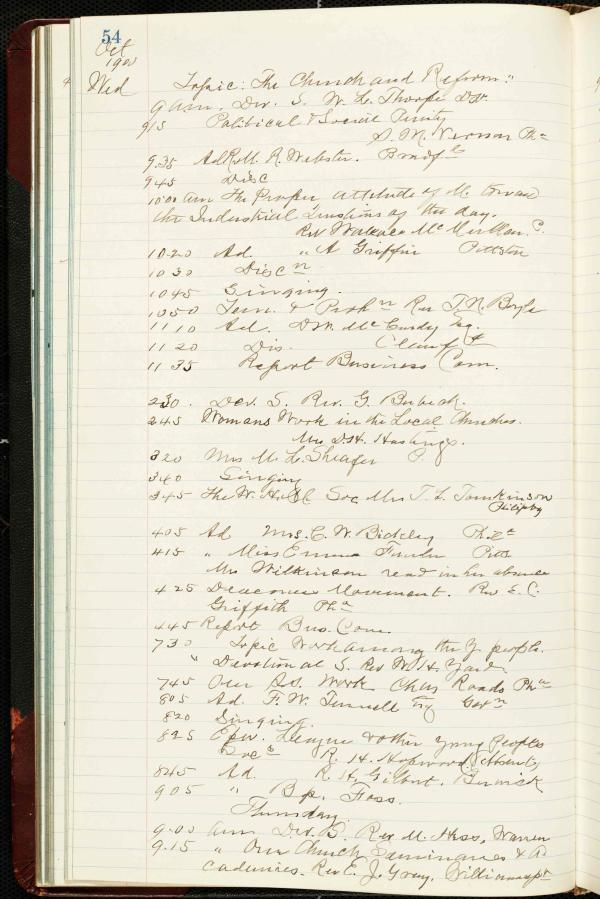 54
Oct
190
Wed Topic: The Church and Reform."
9 am. Dev. S. W. L. Thorpe DD.
915 Political & Social Purity
S. M. Vernon Pha
9.35 Ad R. Webster. Bradf
945 Disc
10.00 am The Proper attitude of M. toward
the Industrial Questions of the day.
Rev Wallace McMullan. P.
1020 Ad. " A Griffin Pittston
1030 Discn
1045 Singing.
1050 Tem. & Prohn Rev T. N. Boyle
1110 Ad. D. M. McCurdy Esq.
1120 Dis.
1135 Report Business Com.
230. Dev. S. Rev. G.
245 Womans Work in the Local Churches.
Mrs D. H. Hastings.
320 Mrs M. L. Sheafer P.
340 Singing
345 The W. H. Soc Mrs T. L. Tomkinson
Philipsbg
405 Ad Mrs. C. W. Bickley Pha
415 " Miss Emma Fowler Pitts
Mrs Wilkinson read in her absence
425 Deaconess Movement. Rev. E. C.
Griffith Pha
445 Report Bus. Com.
730 Topic Work among the Y. people.
" Devotional S. Rev W. H.
745 Our S.S. Work Chas Roads Pha
805 Ad. F. W. Tunnell Esq Gern
820 Singing.
825 Epw. League & other Young Peoples
Socs R. H.
845 Ad. R. H. Gilbert. Berwick
905 " Bp. Foss.
Thursday
9.00 am Dev. S. Rev M. Hess, Warren
9.15 " Our Church Seminaries & A
cademies. Rev E. J. Gray, Williamspt